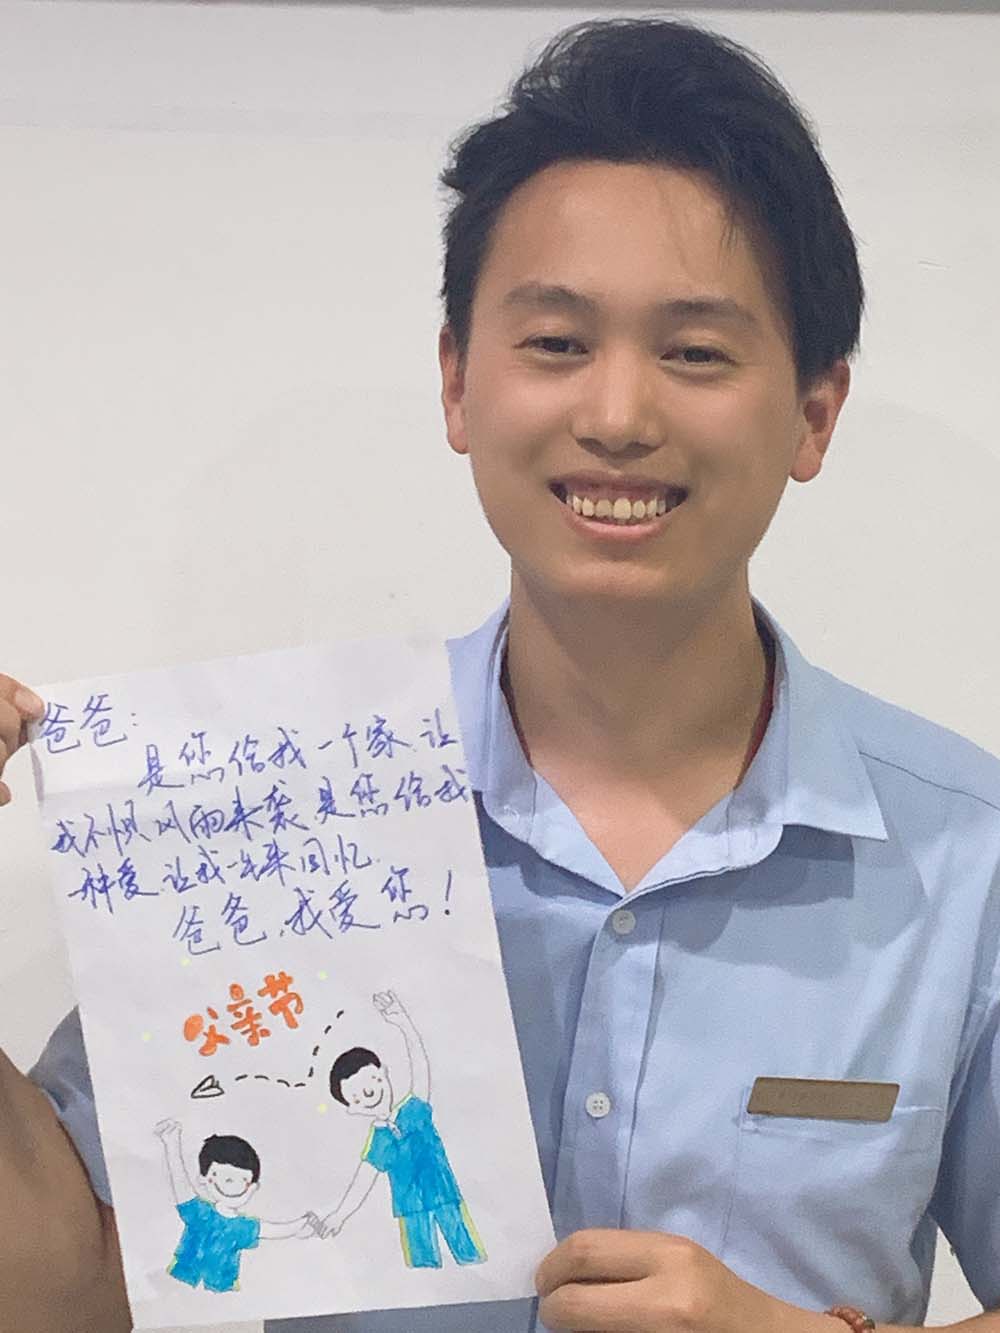 爸爸：
是您给我一个家，让
我不惧风雨来袭，是您给我
一种爱，让我一生来回忆。
爸爸，我爱您！
父亲节